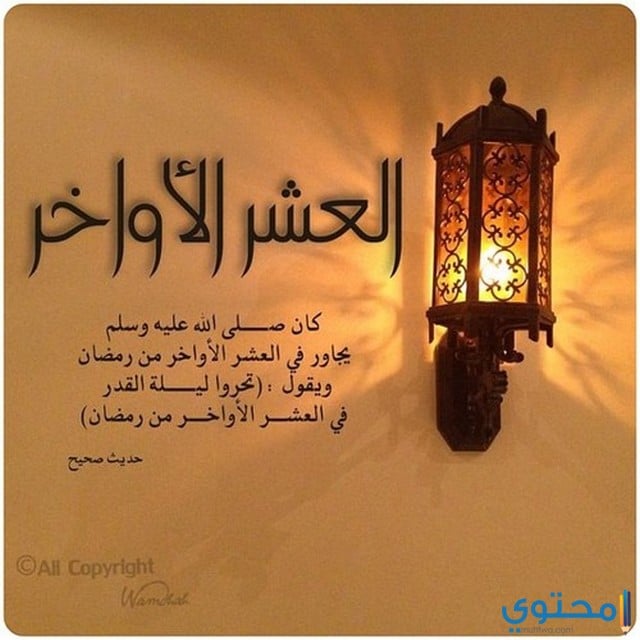 العشر الأواخر
كان صلى الله عليه وسلم
يجاور في العشر الأواخر من رمضان
ويقول : (تحروا ليلة القدر
في العشر الأواخر من رمضان)
حديث صحيح
©All Copyright
Wamdhah
محتوي
muhtwa.com